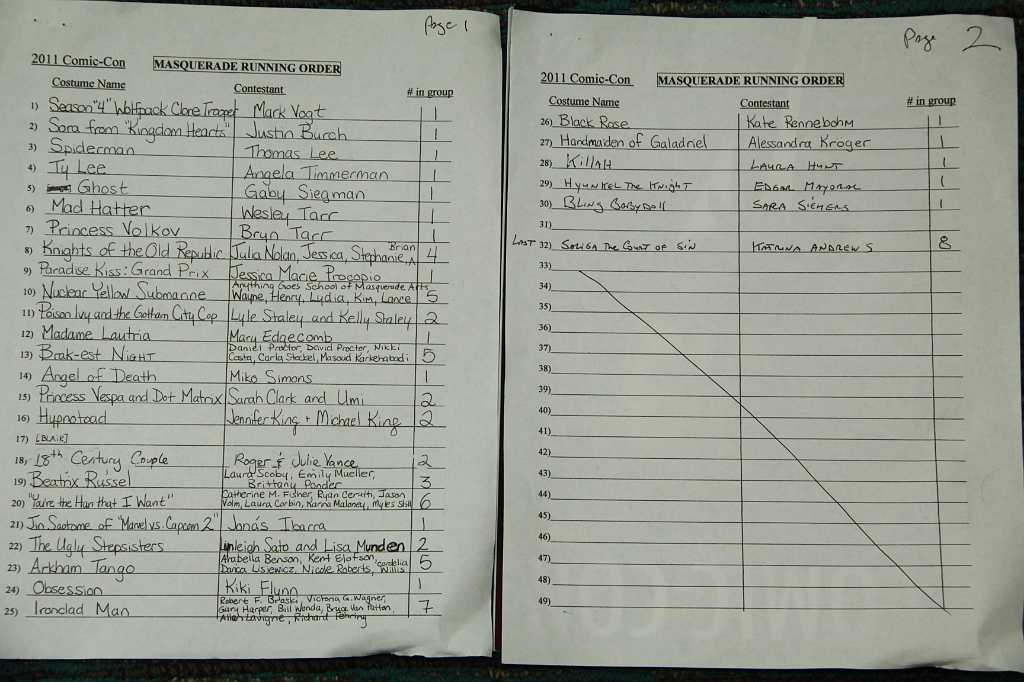 Page 1
2011 Comic-Con MASQUERADE RUNNING ORDER
Costume Name Contestant # in group
1) Season "4" Wolfpack Clone Trooper Mark Vogt 1
2) Sora from "Kingdom Hearts" Justin Burch 1
3) Spiderman Thomas Lee 1
4) Ty Lee Angela Timmerman 1
5) Ghost Gaby Siegman 1
6) Mad Hatter Wesley Tarr 1
7) Princess Volkov Bryn Tarr 1
8) Knights of the Old Republic Julia Nolan, Jessica, Stephanie, Brian 4
9) Paradise Kiss: Grand Prix Jessica Marie Procopio 1
Anything Goes School of Masquerade Arts
10) Nuclear Yellow Submarine Wayne, Henry, Lydia, Kim, Lance 5
11) Poison Ivy and the Gotham City Cop Lyle Staley and Kelly Staley 2
12) Madame Lautria Mary Edgecomb 1
Daniel Proctor, David Proctor, Nikki
13) Brak-est Night Costa, Carla Stockel, Masoud Karkehabadi 5
14) Angel of Death Miko Simons 1
15) Princess Vespa and Dot Matrix Sarah Clark and Umi 2
16) Hypnotoad Jennifer King + Michael King 2
17) [BLANK]
18) 18th Century Couple Roger & Julie Vance 2
Laura Scoby, Emily Mueller,
19) Beatrix Russel Brittany Ponder 3
Catherine M. Fisher, Ryan Cerutti, Jason
20) "You're the Han that I Want" Laura Corbin, Karina Maloney, Myles Still 6
21) Jin Saotome of "Marvel vs. Capcom 2" Jonás Ibarra 1
22) The Ugly Stepsisters Sato and Lisa Munden 2
Arabella Benson, Kent Elofson, Cordelia
23) Arkham Tango Danca Lisiewicz, Nicole Roberts, Willis 5
24) Obsession Kiki Flynn 1
Robert F. Braski, Victoria G. Wagner,
25) Ironclad Man Gary Harper, Bill Wonda, Bruce Van Patton, 7
Allan Lavigne, Richard Fehring
Page 2
2011 Comic-Con MASQUERADE RUNNING ORDER
Costume Name Contestant # in group
26) Black Rose Kate Rennebohm 1
27) Handmaiden of Galadriel Alessandra Kroger 1
28) Killah Laura Hunt 1
29) Hyunkel The Knight Edgar Mayoral 1
30) Bling Babydoll Sara Siemens 1
31)
LAST 32) The Court of Sin Katrina Andrews 8
33)
34)
35)
36)
37)
38)
39)
40)
41)
42)
43)
44)
45)
46)
47)
48)
49)